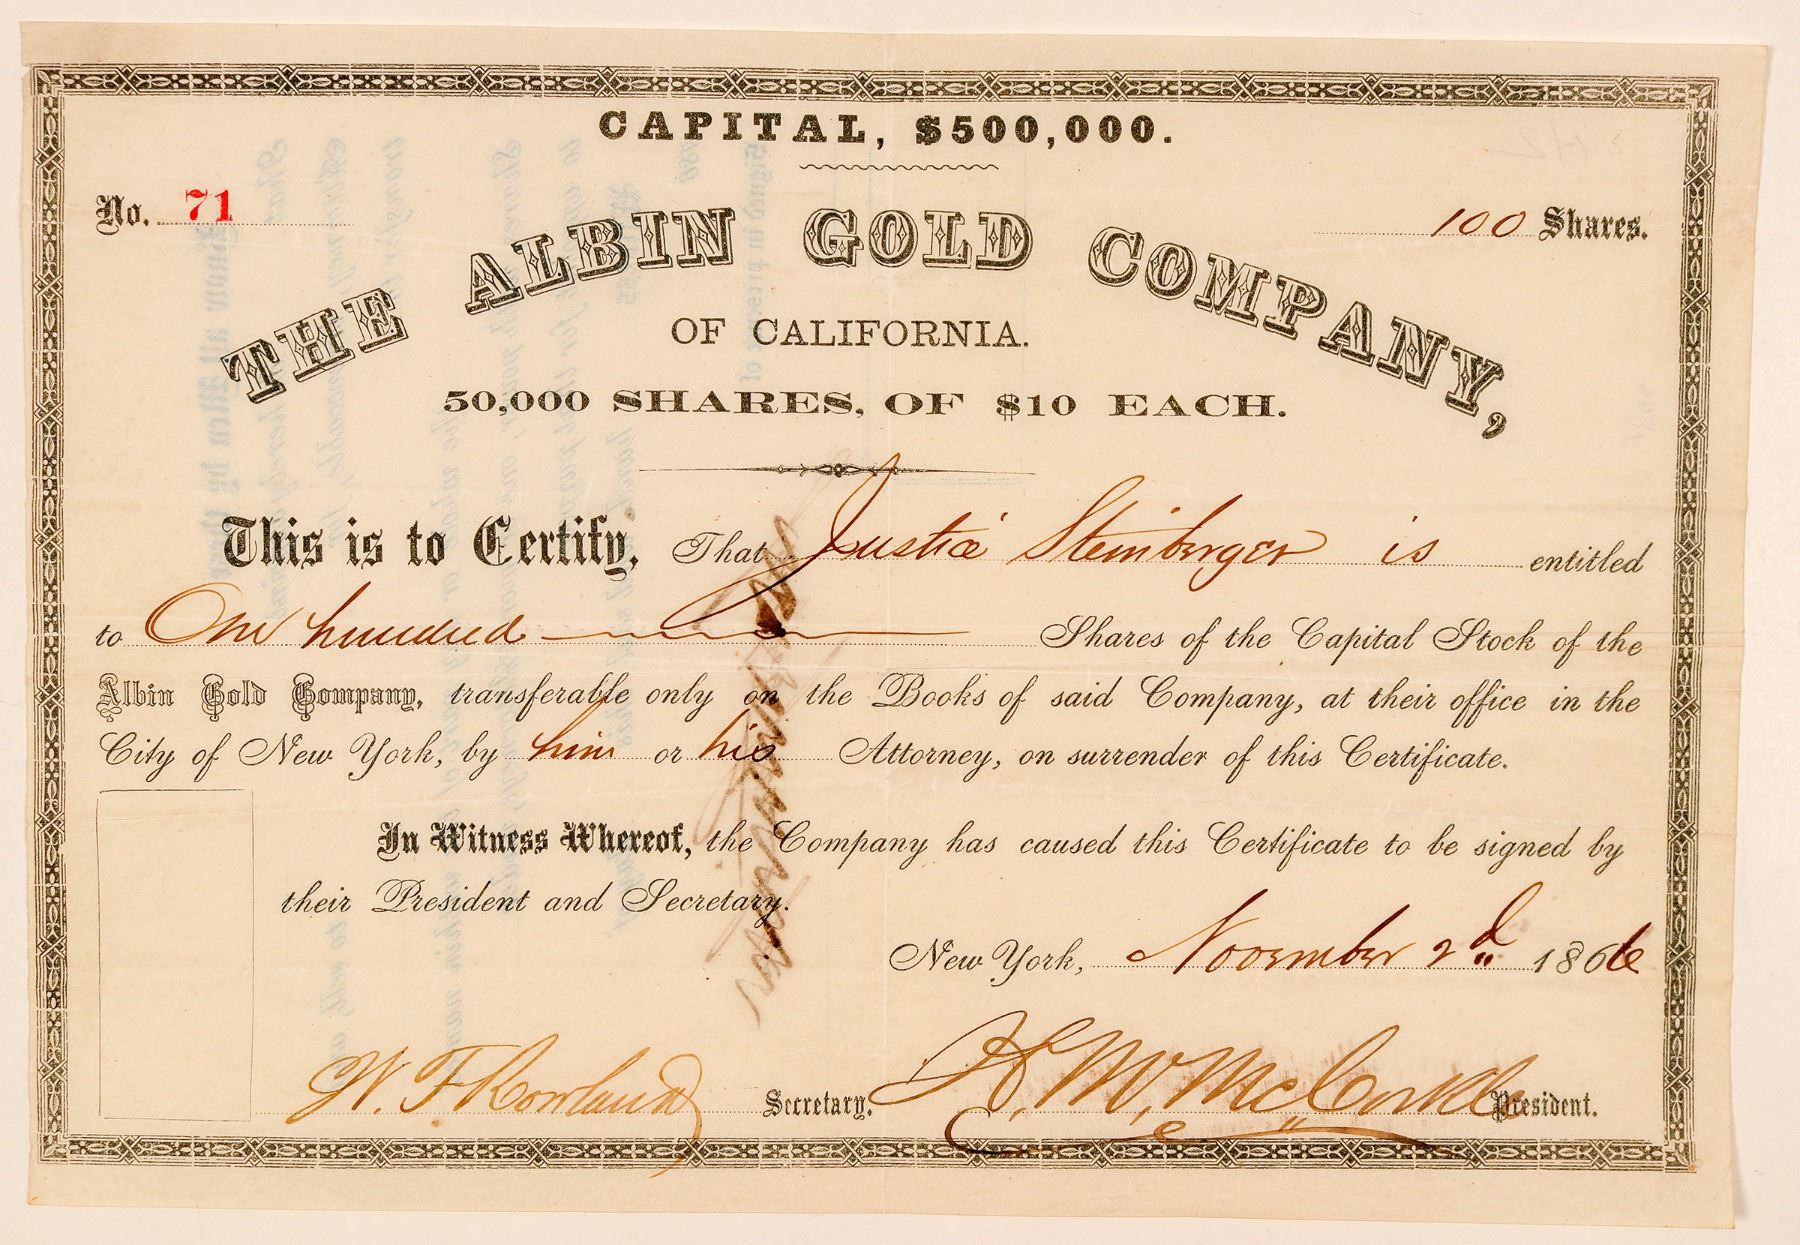 CAPITAL, $500,000.
No. 71
100 Shares.
THE ALBIN GOLD COMPANY,
OF CALIFORNIA.
50,000 SHARES, OF $10 EACH.
This is to Certify, That Justice Steinberger is entitled
to One hundred Shares of the Capital Stock of the
Albin Gold Company, transferable only on the Books of said Company, at their office in the
City of New York, by him or his Attorney, on surrender of this Certificate.
In Witness Whereof, the Company has caused this Certificate to be signed by
their President and Secretary.
New York, November 2d 1866
W. F. Rowland Secretary. H. M. McCorkle President.